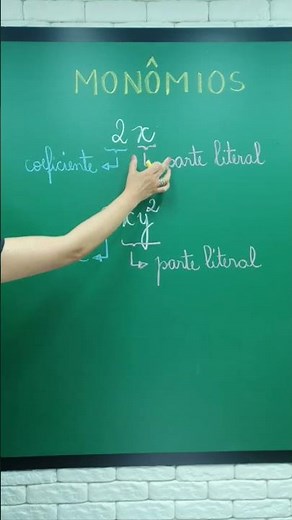 MONÔMIOS
2x
coeficiente parte literal
xy²
parte literal